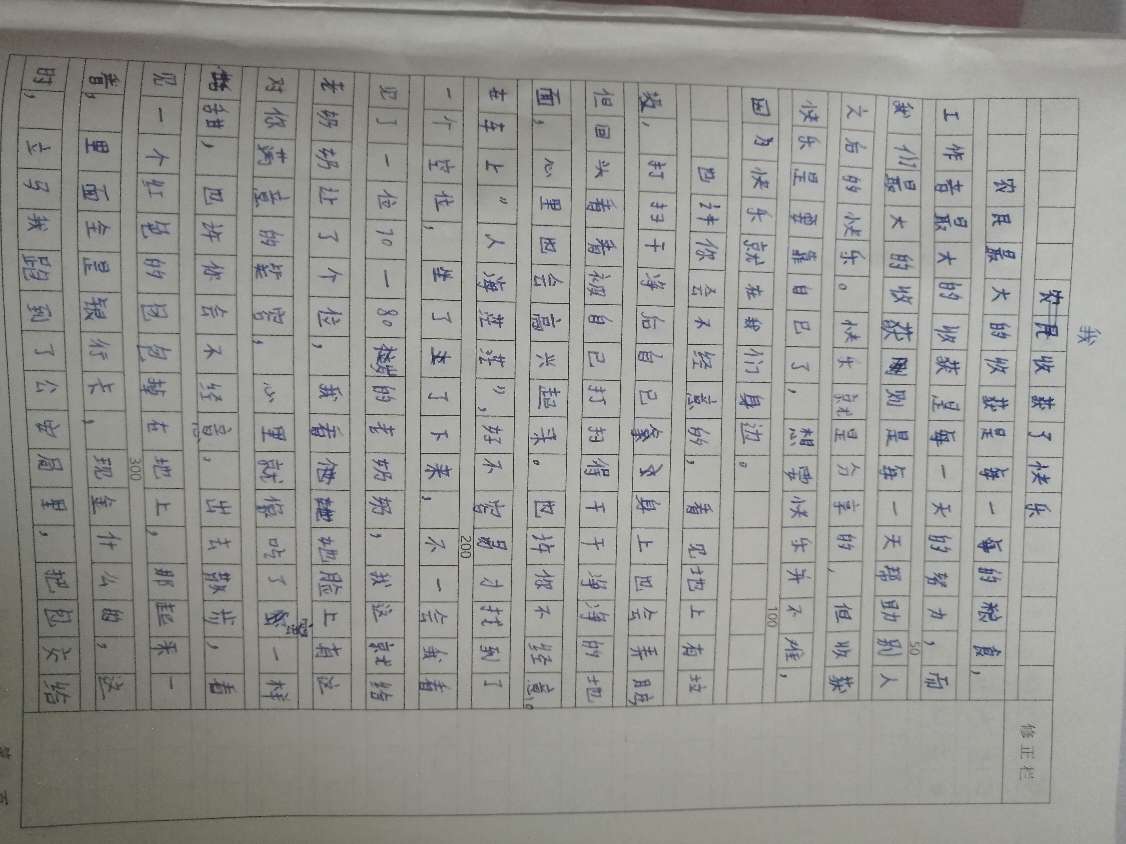 我收获了快乐
农民最大的收获是每一每的粮食，
工作者最大的收获是每一天的努力，而
我们最大的收获则是每一天帮助别人
之后的快乐。快乐就是分享的，但收获
快乐是要靠自己了，想要快乐并不难，
因为快乐就在我们身边。
也许你会不经意的，看见地上有垃
圾，打扫干净后自己身上也会弄脏
但回头看看被自己打扫得干干净净的地
面，心里也会高兴起来。也许你不经意。
在车上“人海茫茫”，好不容易才找到了
一个空位，坐了下来，不一会我看
见了一位70一80岁的老奶奶，我这就给
老奶奶让了个位，我看她脸上有这
对你满意的笑容，心里就像吃了蜜一样
甜，也许你会不经意，出去散步，看
见一个红色的包包掉在地上，那起来一
看，里面全是银行卡，现金什么的，这
时，立马我跑到了公安局里，把包交给
50
100
200
300
修正栏
第 页